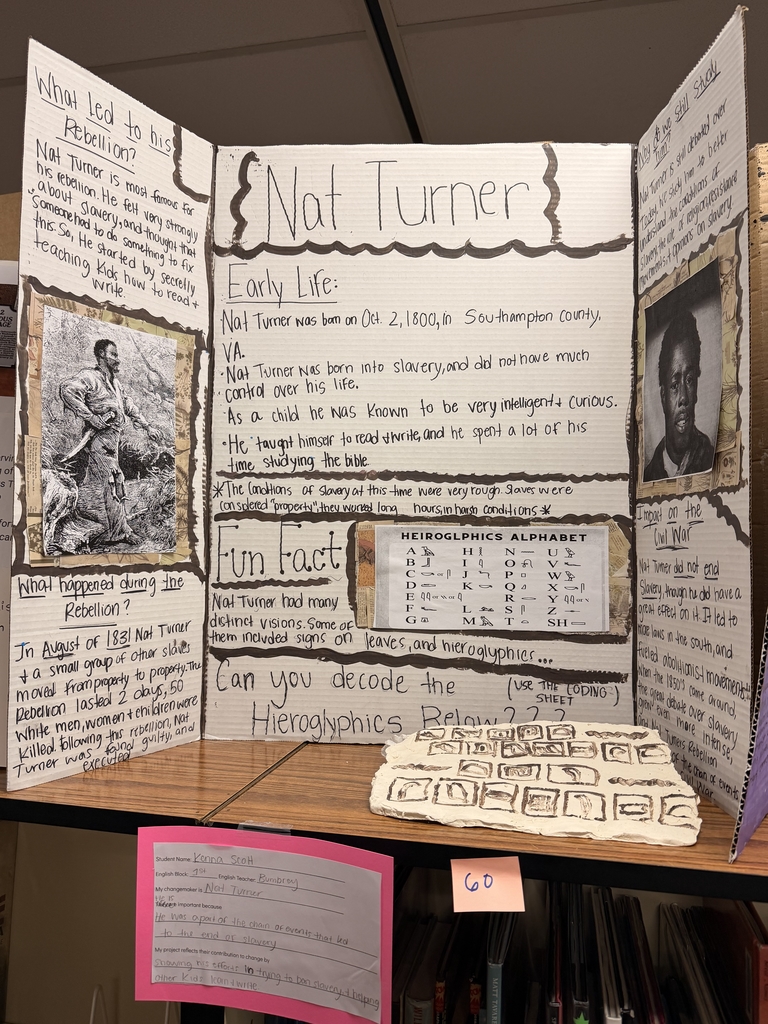 What led to his
Rebellion?
Nat Turner is most famous for
his rebellion. He felt very strongly
about slavery, and thought that
Someone had to do something to fix
this. So, He started by secretly
teaching Kids how to read +
write.
What happened during the
Rebellion?
In August of 1831 Nat Turner
+ a small group of other slaves
moved from property to property. The
Rebellion lasted 2 days, 50
White men, women + children were
Killed following this rebellion, Nat
Turner was found guilty, and
executed
Nat Turner
Early Life:
Nat Turner was born on Oct. 2, 1800, in Southampton county,
VA.
·Nat Turner was born into slavery, and did not have much
control over his life.
·As a child he was known to be very intelligent + curious.
·He taught himself to read + write, and he spent a lot of his
time studying the bible.
*The conditions of slavery at this time were very rough. Slaves were
considered "property", they worked long hours, in harsh conditions *
Fun Fact
HEIROGLPHICS ALPHABET
A H N U
B I O V
C J P W
D K Q X
E R Y
F L S Z
G M T SH
Nat Turner had many
distinct visions. Some of
them included signs on leaves, and hieroglyphics...
Can you decode the (USE THE CODING
SHEET)
Hieroglyphics Below???
Why do we still study
him?
Nat Turner is still debated over
today. We study him to better
understand the conditions of
Slavery, the role of religion, slave
movements, + opinions on slavery.
Impact on the
Civil War
Nat Turner did not end
Slavery, though he did have a
great effect on it. It led to
more laws in the south, and
fueled abolitionist movements.
when the 1850's came around,
the great debate over slavery
even more intense,
Turners Rebellion
of the chain of events
War
Student Name: Kenna Scott
English Block: 1st English Teacher: Bumbrey
My changemaker is Nat Turner
is important because
He was a part of the chain of events that led
to the end of slavery
My project reflects their contribution to change by
showing his efforts in trying to ban slavery, + helping
other Kids
60
MATT